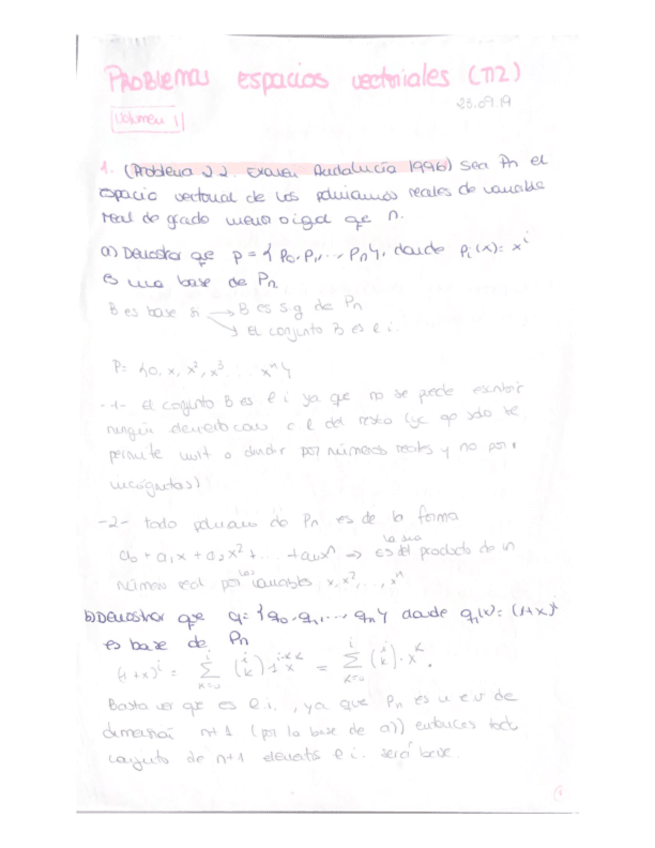 PROBLEMAS espacios vectoriales (T12)
23.09.19
Volumen 1
1. (Problema 22. Examen Andalucía 1996) Sea Pn el
espacio vectorial de los polinomios reales de variable
real de grado menor o igual que n.
a) Demostrar que p = {p0, p1, ..., pn}, donde pi(x) = x^i
es una base de Pn
B es base si → B es s.g de Pn
→ El conjunto B es l.i.
P = {0, x, x², x³, ... x^n}
-1- El conjunto B es l i ya que no se puede escribir
ningún elemento como c.l del resto (ya que solo te
permite mult o dividir por números reales y no por
incógnitas)
-2- todo polinomio de Pn es de la forma
a0 + a1x + a2x² + ... + anx^n => es la suma del producto de un
número real por las variables x, x², ..., x^n
b) Demostrar que q = {q0, q1, ..., qn} donde qi(x) = (1+x)^i
es base de Pn
(1+x)^i = Σ_{k=0}^{i} (i k) 1^{i-k} x^k = Σ_{k=0}^{i} (i k) · x^k.
Basta ver que es l.i., ya que Pn es u e v de
dimensión n+1 (por la base de a)) entonces todo
conjunto de n+1 elements l i. será base.